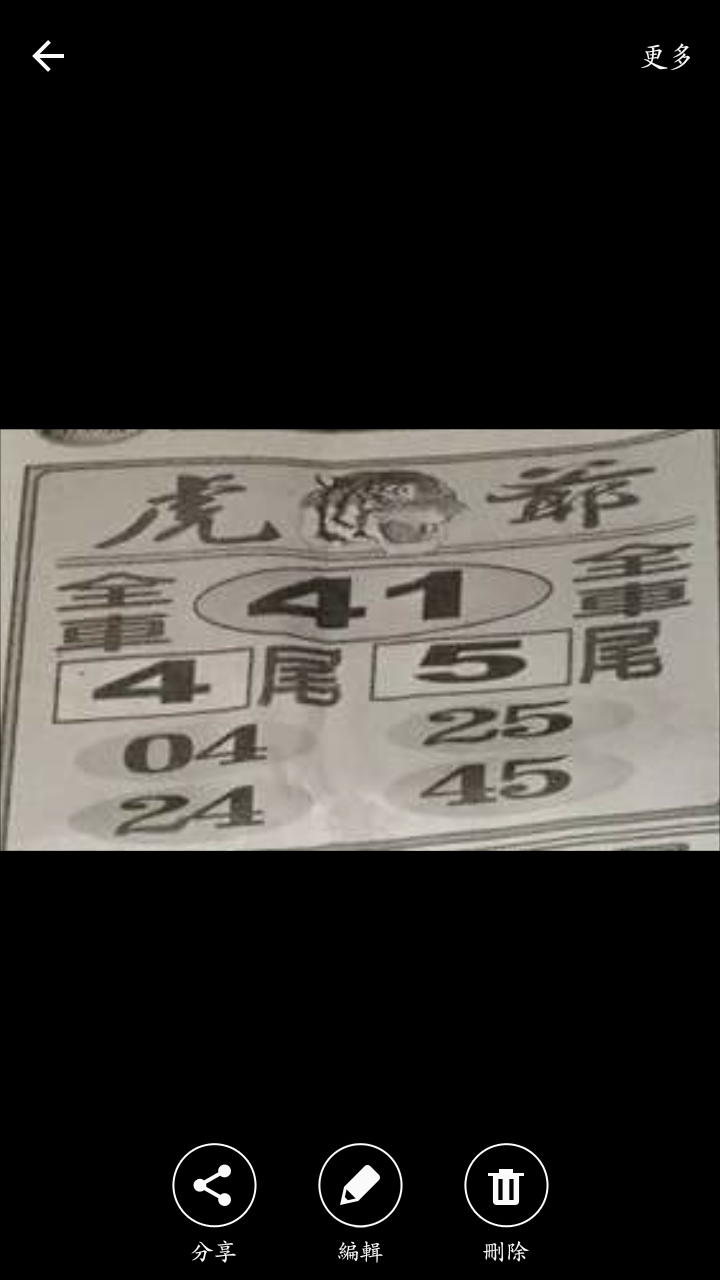 更多
虎爺
全車 41 全車
4尾 5尾
04 25
24 45
分享 編輯 刪除